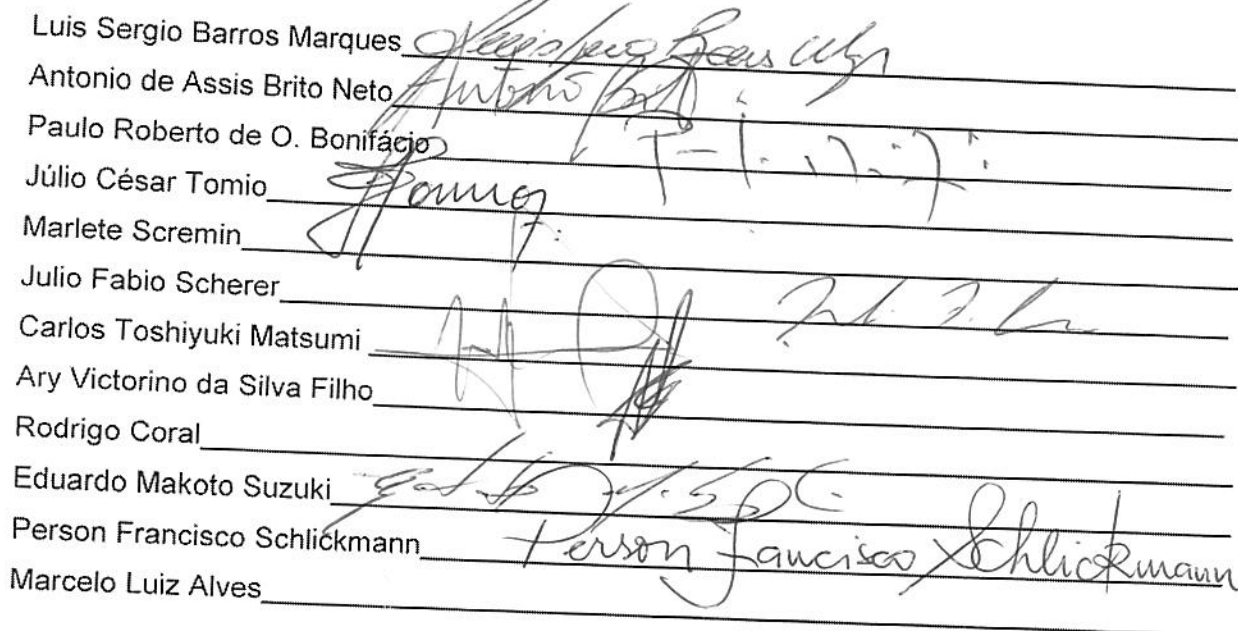 Luis Sergio Barros Marques
Antonio de Assis Brito Neto Antonio
Paulo Roberto de O. Bonifácio
Júlio César Tomio
Marlete Scremin
Julio Fabio Scherer
Carlos Toshiyuki Matsumi
Ary Victorino da Silva Filho
Rodrigo Coral
Eduardo Makoto Suzuki
Person Francisco Schlickmann Person Francisco Schlickmann
Marcelo Luiz Alves